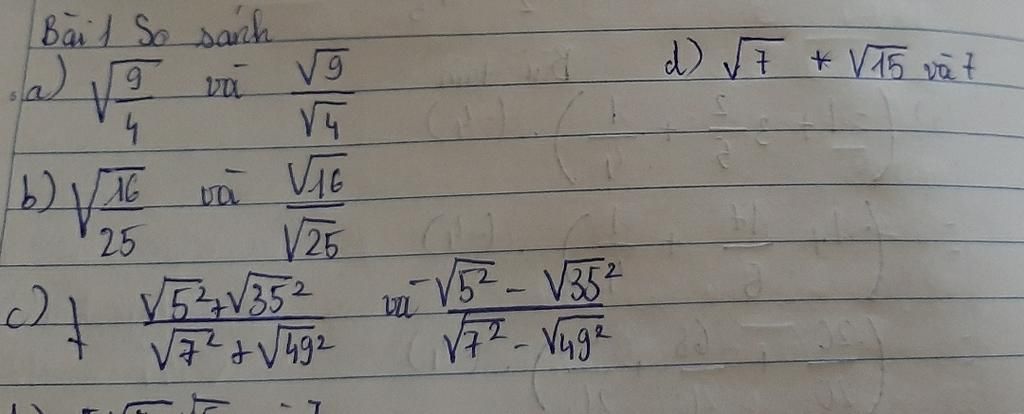 Bài 1 So sánh
a) √(9/4) và √9/√4
d) √7 + √15 và 7
b) √(16/25) và √16/√25
c) (√5² + √35²)/(√7² + √49²) và (√5² - √35²)/(√7² - √49²)